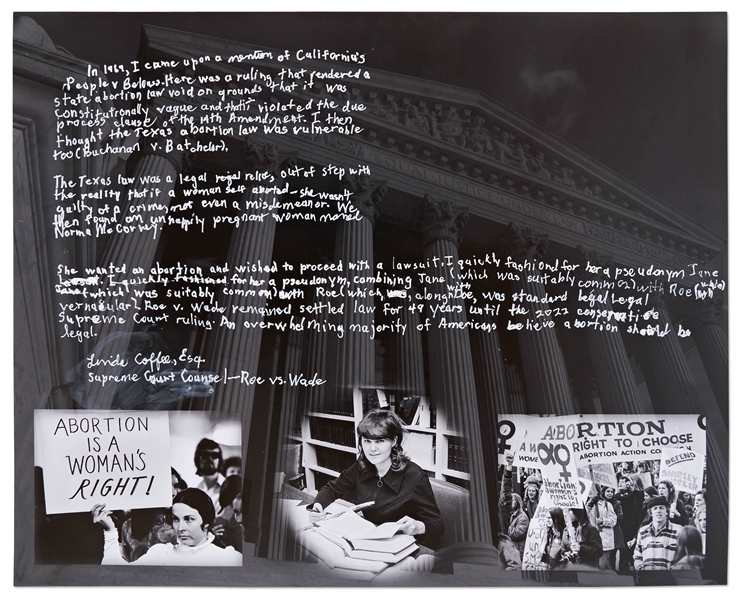 In 1969, I came upon a mention of California's
People v Belous. Here was a ruling that rendered a
state abortion law void on grounds that it was
constitutionally vague and that it violated the due
process clause of the 14th Amendment. I then
thought the Texas abortion law was vulnerable
too (Buchanan v. Batchelor).
The Texas law was a legal relic, out of step with
the reality that if a woman self aborted — she wasn't
guilty of a crime, not even a misdemeanor. We
then found an unhappily pregnant woman named
Norma McCorvey.
She wanted an abortion and wished to proceed with a lawsuit. I quickly fashioned for her a pseudonym Jane
I quickly fashioned for her a pseudonym, combining Jane (which was suitably common) with Roe (
(which was suitably common) with Roe (which was, along with Doe, was standard legal legal
vernacular). Roe v. Wade remained settled law for 49 years until the 2022 conservative
Supreme Court ruling. An overwhelming majority of Americans believe abortion should be
legal.
Linda Coffee, Esq.
Supreme Court Counsel — Roe vs. Wade
ABORTION
IS A
WOMAN'S
RIGHT!
ABORTION
RIGHT TO CHOOSE
ABORTION ACTION CO
DEFEND
SHIRLEY
Abortion
a WOMAN'S
right to
choose